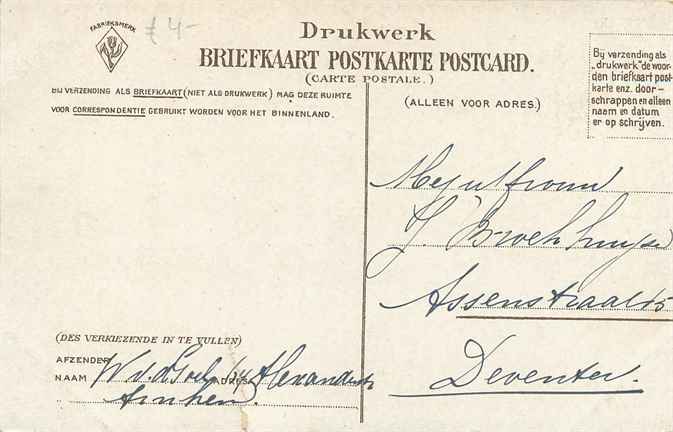 FABRIEKSMERK
£ 4-
Drukwerk
BRIEFKAART POSTKARTE POSTCARD.
(CARTE POSTALE.)
BIJ VERZENDING ALS BRIEFKAART (NIET ALS DRUKWERK) MAG DEZE RUIMTE
VOOR CORRESPONDENTIE GEBRUIKT WORDEN VOOR HET BINNENLAND.
(ALLEEN VOOR ADRES.)
Bij verzending als
„drukwerk" de woor-
den briefkaart post-
karte enz. door-
schrappen en alleen
naam en datum
er op schrijven.
Mejuffrouw
Assenstraat
Deventer.
(DES VERKIEZENDE IN TE VULLEN)
AFZENDER
NAAM W. v. d. ADRES
Arnhem.